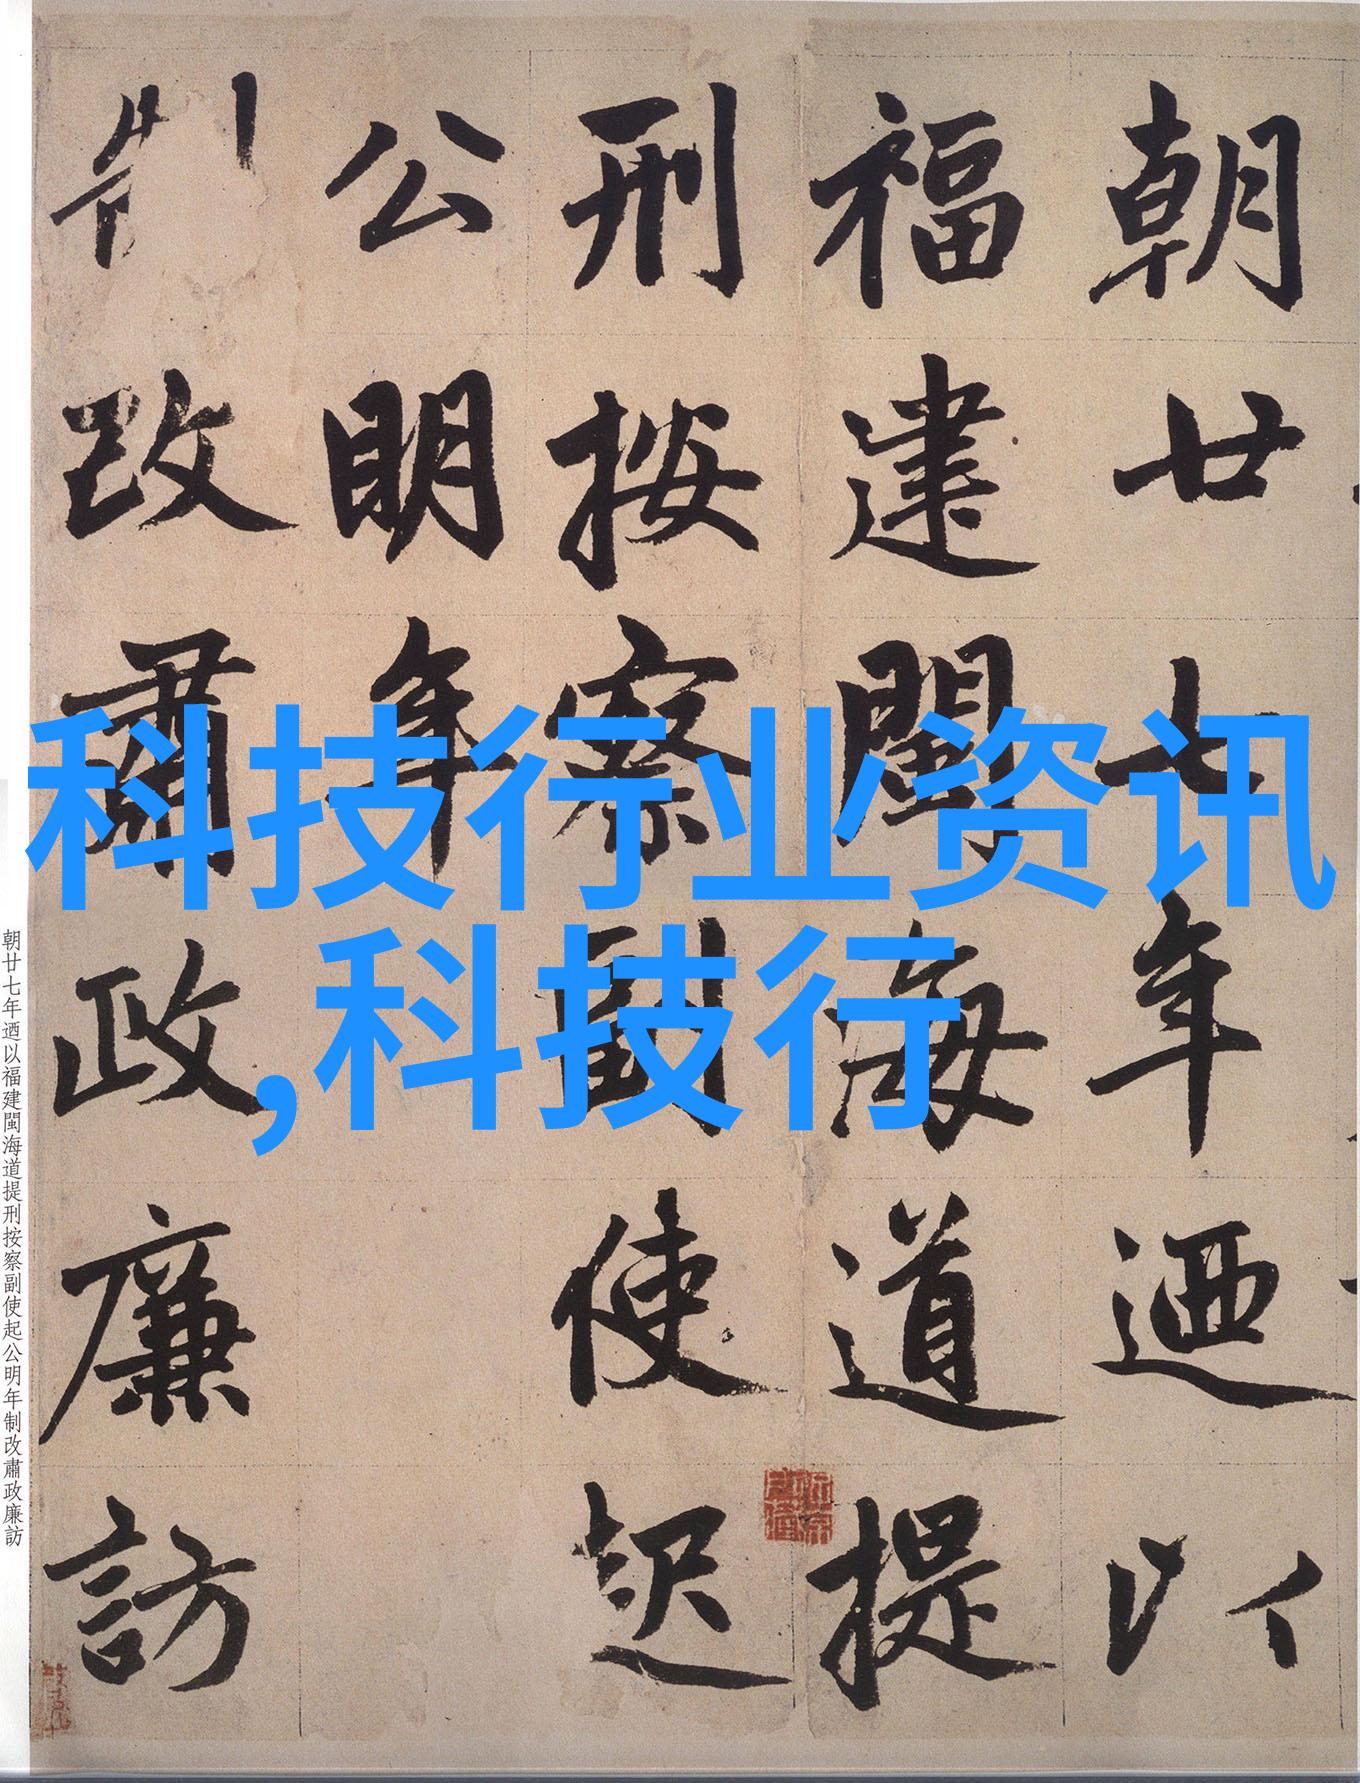 朝廿七年迺以
福建閩海道提
刑按察副使起
公明年
制改肅政廉訪
科技行业资讯
,科技行
朝廿七年迺以福建閩海道提刑按察副使起公明年制改肅政廉訪